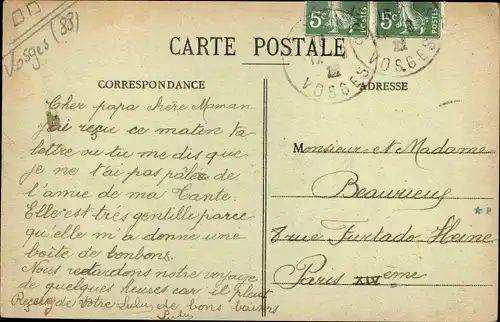 Vosges (88)
5c 5c
VOSGES VOSGES
CARTE POSTALE
CORRESPONDANCE
ADRESSE
Cher papa chère Maman
J'ai reçu ce matin ta
lettre ou tu me dis que
je ne t'ai pas pàlé de
l'amie de ma Tante.
Elle est très gentille parce
qu'elle m'a donné une
boîte de bonbons.
Nous retardons notre voyage
de quelques heures car il pleut
Reçoivez de votre Lulu de bons baisers
Lulu
Monsieur et Madame
Beaurieux
rue Furtado Heine
Paris XIVème